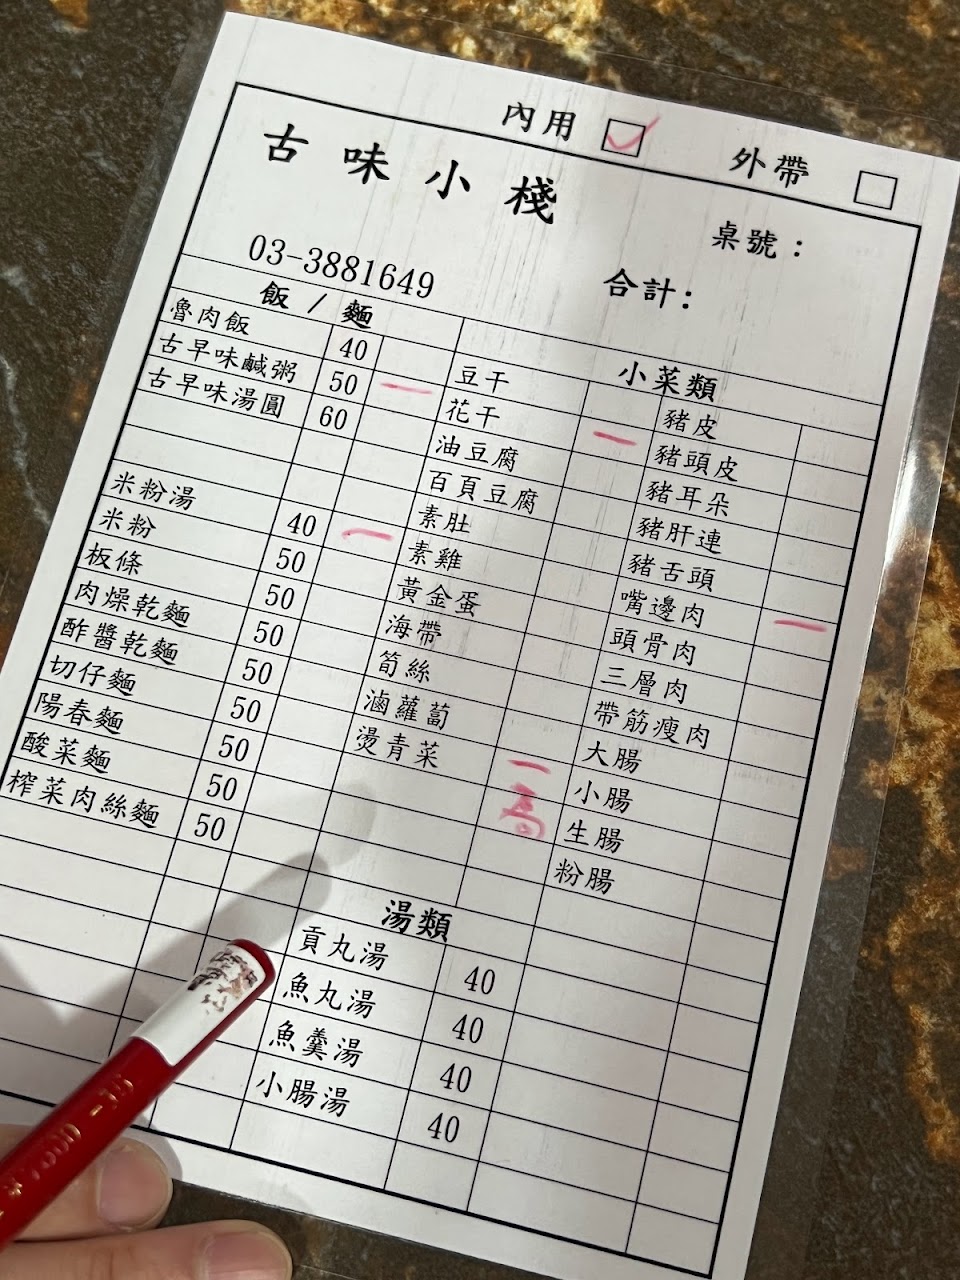 內用 ✓ 外帶
古味小棧
桌號：
03-3881649
合計：
飯 / 麵
魯肉飯 40
古早味鹹粥 50 一
古早味湯圓 60
米粉湯 40 一
米粉 50
板條 50
肉燥乾麵 50
酢醬乾麵 50
切仔麵 50
陽春麵 50
酸菜麵 50
榨菜肉絲麵 50
小菜類
豆干
花干 一
油豆腐
百頁豆腐
素肚
素雞
黃金蛋
海帶
筍絲
滷蘿蔔
燙青菜 一
豬皮
豬頭皮
豬耳朵
豬肝連
豬舌頭
嘴邊肉 一
頭骨肉
三層肉
帶筋瘦肉
大腸
小腸
生腸
粉腸
湯類
貢丸湯 40
魚丸湯 40
魚羹湯 40
小腸湯 40